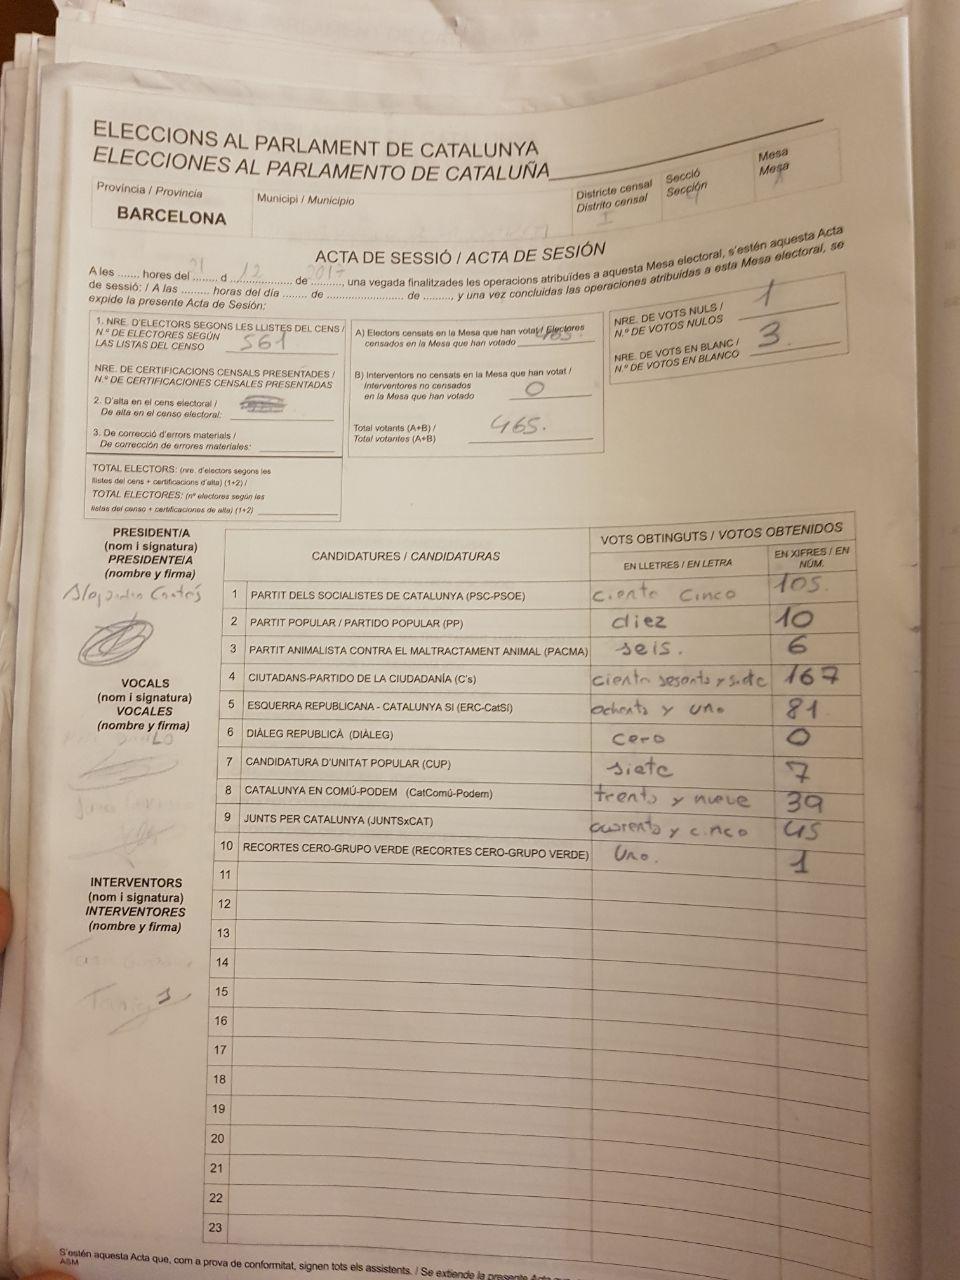 ELECCIONS AL PARLAMENT DE CATALUNYA
ELECCIONES AL PARLAMENTO DE CATALUÑA
Província / Provincia
BARCELONA
Municipi / Municipio
Districte censal
Distrito censal
I
Secció
Sección
Mesa
Mesa
ACTA DE SESSIÓ / ACTA DE SESIÓN
A les ....... hores del 21 d 12 de 2017, una vegada finalitzades les operacions atribuïdes a aquesta Mesa electoral, s'estén aquesta Acta
de sessió: / A las ......... horas del día ....... de .............. de ........, y una vez concluidas las operaciones atribuidas a esta Mesa electoral, se
expide la presente Acta de Sesión:
1. NRE. D'ELECTORS SEGONS LES LLISTES DEL CENS /
N.º DE ELECTORES SEGÚN
LAS LISTAS DEL CENSO 561
NRE. DE CERTIFICACIONS CENSALS PRESENTADES /
N.º DE CERTIFICACIONES CENSALES PRESENTADAS
2. D'alta en el cens electoral /
De alta en el censo electoral:
3. De correcció d'errors materials /
De corrección de errores materiales:
TOTAL ELECTORS: (nre. d'electors segons les
llistes del cens + certificacions d'alta) (1+2) /
TOTAL ELECTORES: (nº electores según las
listas del censo + certificaciones de alta) (1+2)
A) Electors censats en la Mesa que han votat / Electores
censados en la Mesa que han votado 465.
B) Interventors no censats en la Mesa que han votat /
Interventores no censados
en la Mesa que han votado 0
Total votants (A+B) /
Total votantes (A+B) 465.
NRE. DE VOTS NULS /
N.º DE VOTOS NULOS 1
NRE. DE VOTS EN BLANC /
N.º DE VOTOS EN BLANCO 3.
PRESIDENT/A
(nom i signatura)
PRESIDENTE/A
(nombre y firma)
Alejandro Cortés
VOCALS
(nom i signatura)
VOCALES
(nombre y firma)
INTERVENTORS
(nom i signatura)
INTERVENTORES
(nombre y firma)
CANDIDATURES / CANDIDATURAS
VOTS OBTINGUTS / VOTOS OBTENIDOS
EN LLETRES / EN LETRA
EN XIFRES / EN NÚM.
1 PARTIT DELS SOCIALISTES DE CATALUNYA (PSC-PSOE) ciento cinco 105.
2 PARTIT POPULAR / PARTIDO POPULAR (PP) diez 10
3 PARTIT ANIMALISTA CONTRA EL MALTRACTAMENT ANIMAL (PACMA) seis. 6
4 CIUTADANS-PARTIDO DE LA CIUDADANÍA (C's) ciento sesenta y siete 167
5 ESQUERRA REPUBLICANA - CATALUNYA SI (ERC-CatSí) ochenta y uno 81
6 DIÀLEG REPUBLICÀ (DIÀLEG) cero 0
7 CANDIDATURA D'UNITAT POPULAR (CUP) siete 7
8 CATALUNYA EN COMÚ-PODEM (CatComú-Podem) trenta y nueve 39
9 JUNTS PER CATALUNYA (JUNTSxCAT) cuarenta y cinco 45
10 RECORTES CERO-GRUPO VERDE (RECORTES CERO-GRUPO VERDE) Uno. 1
11
12
13
14
15
16
17
18
19
20
21
22
23
S'estén aquesta Acta que, com a prova de conformitat, signen tots els assistents. / Se extiende la presente Acta
ASM